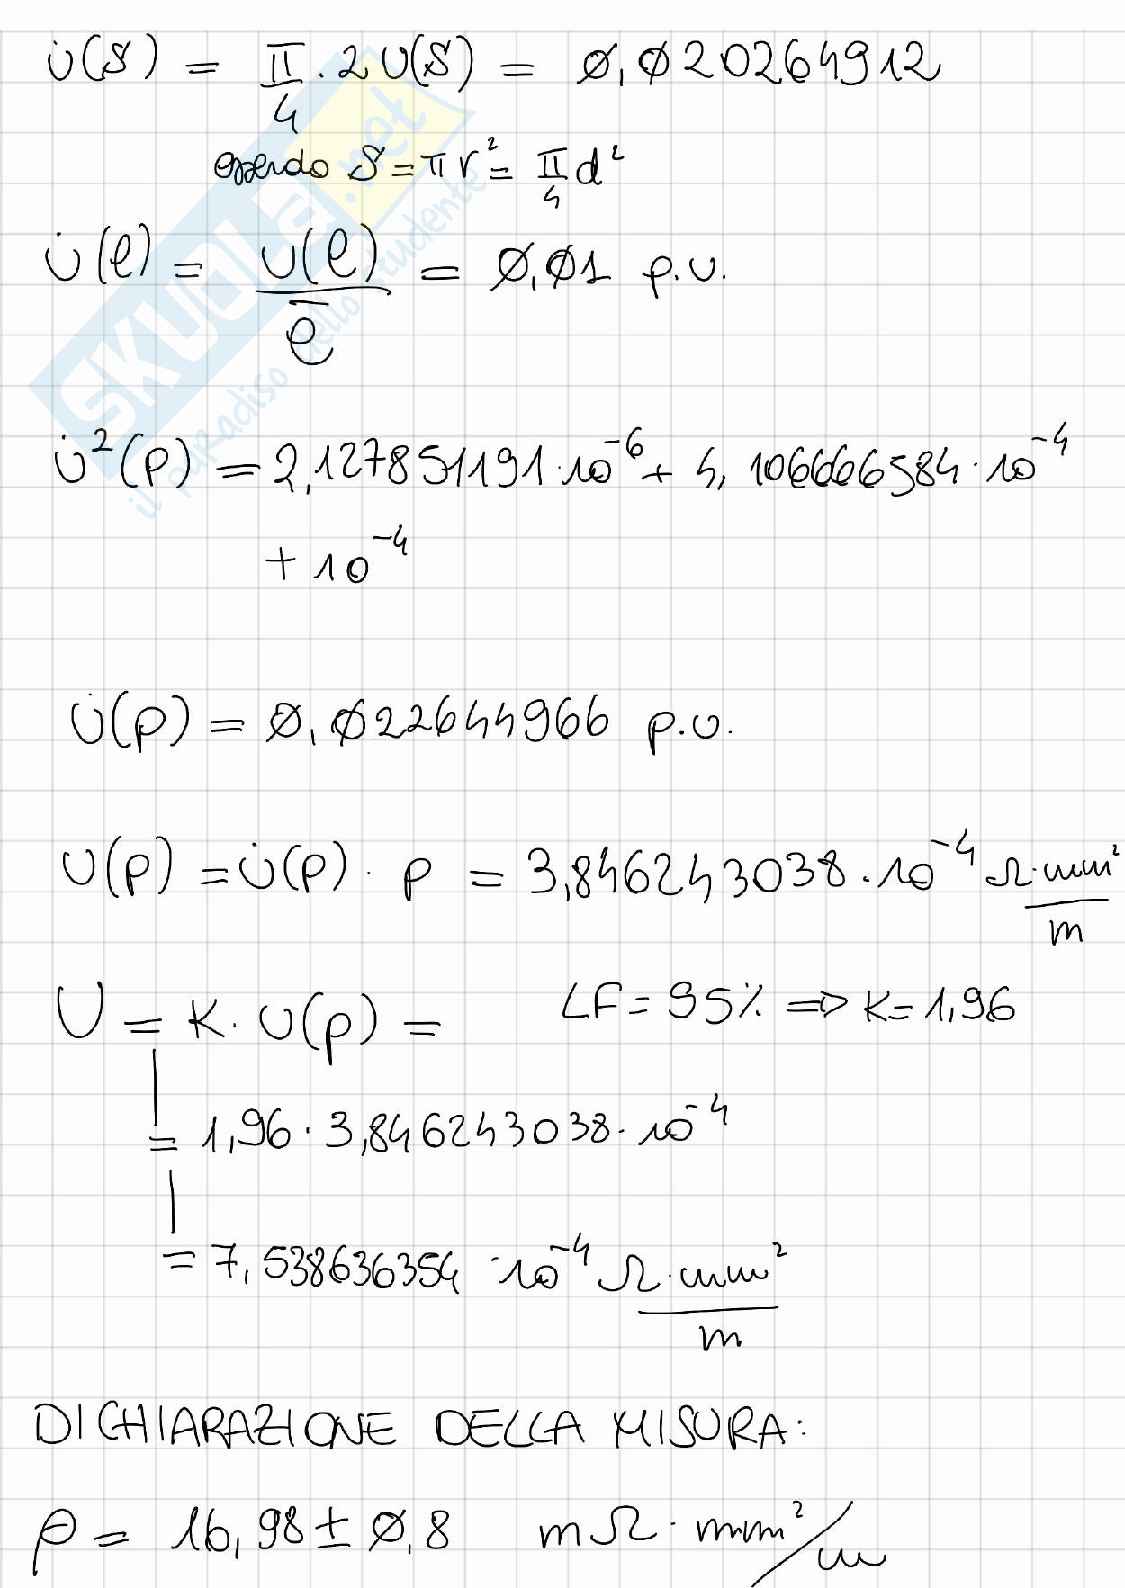 u̇(S) = π/4 · 2u(S) = 0,020264912
essendo S = πr² = π/4 d²
u̇(l) = u(l)/l̄ = 0,01 p.u.
u̇²(ρ) = 2,127851191·10⁻⁶ + 4,106666584·10⁻⁴
+ 10⁻⁴
u̇(ρ) = 0,022644966 p.u.
u(ρ) = u̇(ρ) · ρ = 3,846243038·10⁻⁴ Ω·mm²/m
U = K·u(ρ) = LF = 95% ⇒ K = 1,96
= 1,96·3,846243038·10⁻⁴
= 7,538636354·10⁻⁴ Ω·mm²/m
DICHIARAZIONE DELLA MISURA:
ρ = 16,98 ± 0,8 mΩ·mm²/m
SKUOLA.net
il paradiso dello studente